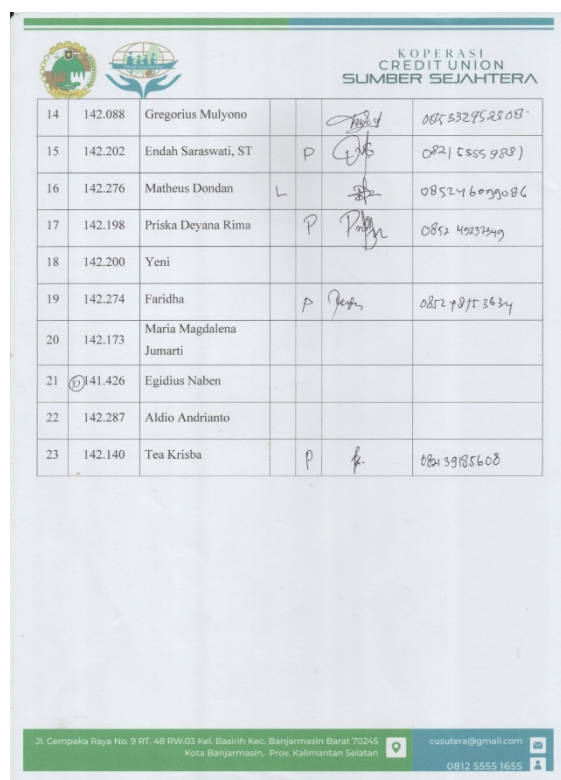 KOPERASI
CREDIT UNION
SUMBER SEJAHTERA
14 142.088 Gregorius Mulyono
15 142.202 Endah Saraswati, ST P
16 142.276 Matheus Dondan L 085246099086
17 142.198 Priska Deyana Rima P
18 142.200 Yeni
19 142.274 Faridha P
20 142.173 Maria Magdalena
Jumarti
21 141.426 Egidius Naben
22 142.287 Aldio Andrianto
23 142.140 Tea Krisba P 082139185608
Jl. Cempaka Raya No. 9 RT. 48 RW.03 Kel. Basirih Kec. Banjarmasin Barat 70245
Kota Banjarmasin, Prov. Kalimantan Selatan
cusutera@gmail.com
0812 5555 1655